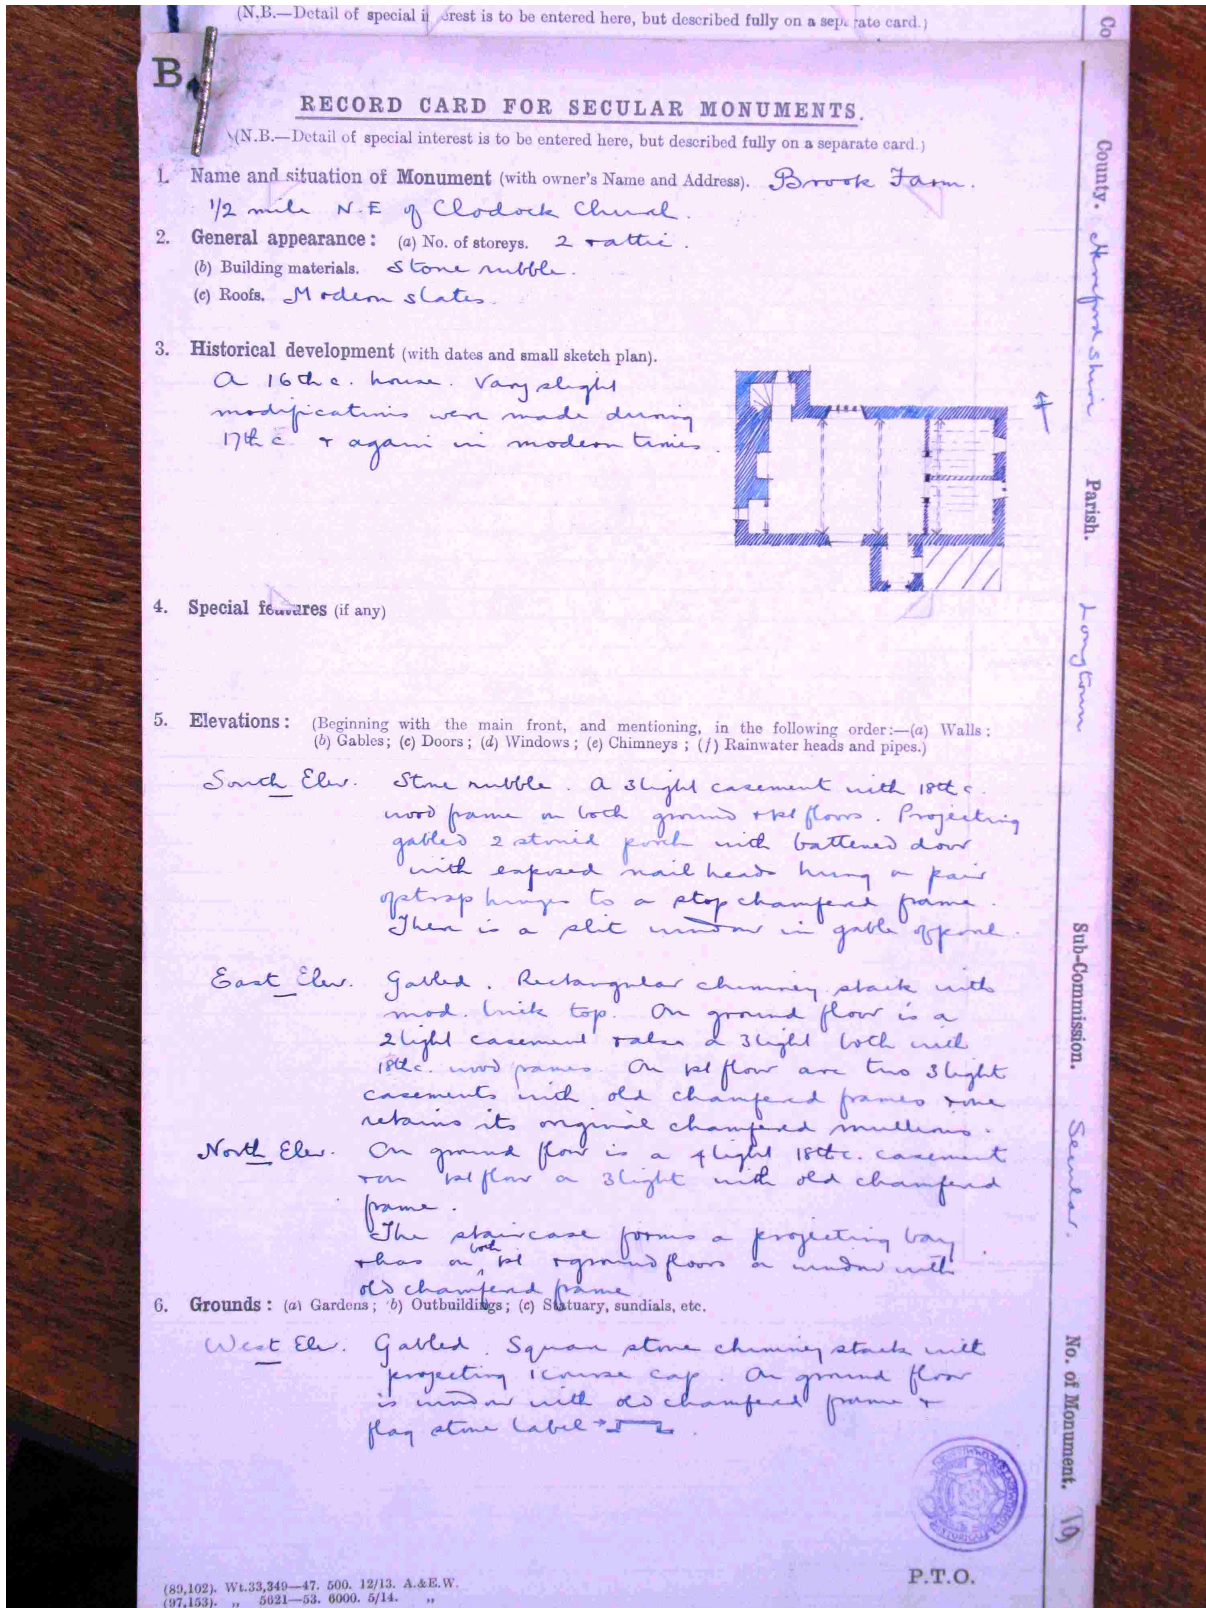 (N.B.—Detail of special interest is to be entered here, but described fully on a separate card.)
Co
B.
RECORD CARD FOR SECULAR MONUMENTS.
(N.B.—Detail of special interest is to be entered here, but described fully on a separate card.)
1. Name and situation of Monument (with owner's Name and Address). Brook Farm.
1/2 mile N.E of Clodock Church.
2. General appearance: (a) No. of storeys. 2 + attic.
(b) Building materials. Stone rubble.
(c) Roofs. Modern slates.
3. Historical development (with dates and small sketch plan).
A 16th c. house. Very slight
modifications were made during
17th c. + again in modern times.
4. Special features (if any)
5. Elevations: (Beginning with the main front, and mentioning, in the following order:—(a) Walls;
(b) Gables; (c) Doors; (d) Windows; (e) Chimneys; (f) Rainwater heads and pipes.)
South Elev. Stone rubble. A 3 light casement with 18th c.
wood frame on both ground + 1st floors. Projecting
gabled 2 storied porch with battened door
with exposed nail heads hung on pair
of strap hinges to a stop chamfered frame.
There is a slit window in gable of porch.
East Elev. Gabled. Rectangular chimney stack with
mod. brick top. On ground floor is a
2 light casement + also a 3 light both with
18th c. wood frames. On 1st floor are two 3 light
casements with old chamfered frames + one
retains its original chamfered mullions.
North Elev. On ground floor is a 4 light 18th c. casement
+ on 1st floor a 3 light with old chamferd
frame.
The staircase forms a projecting bay
+ has on both 1st + ground floors a window with
old chamferd frame
6. Grounds: (a) Gardens; (b) Outbuildings; (c) Statuary, sundials, etc.
West Elv. Gabled. Square stone chimney stack with
projecting 1 course cap. On ground floor
is window with old chamferd frame +
flag stone label
P.T.O.
(89,102). Wt.33,349—47. 500. 12/13. A.&E.W.
(97,153). „ 5621—53. 6000. 5/14. „
County. Herefordshire
Parish. Longtown
Sub-Commission. Secular.
No. of Monument. 19